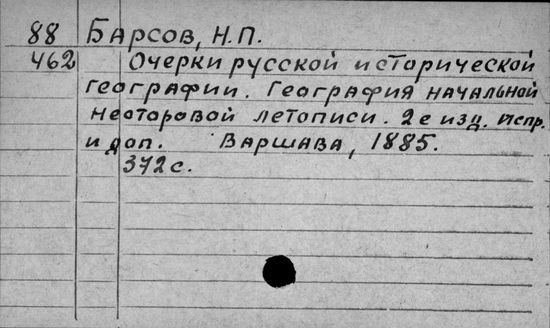 88 Барсов, Н.П.
462 Очерки русской исторической
географии. География начальной
Несторовой летописи. 2е изд. испр.
и доп. Варшава, 1885.
372 с.